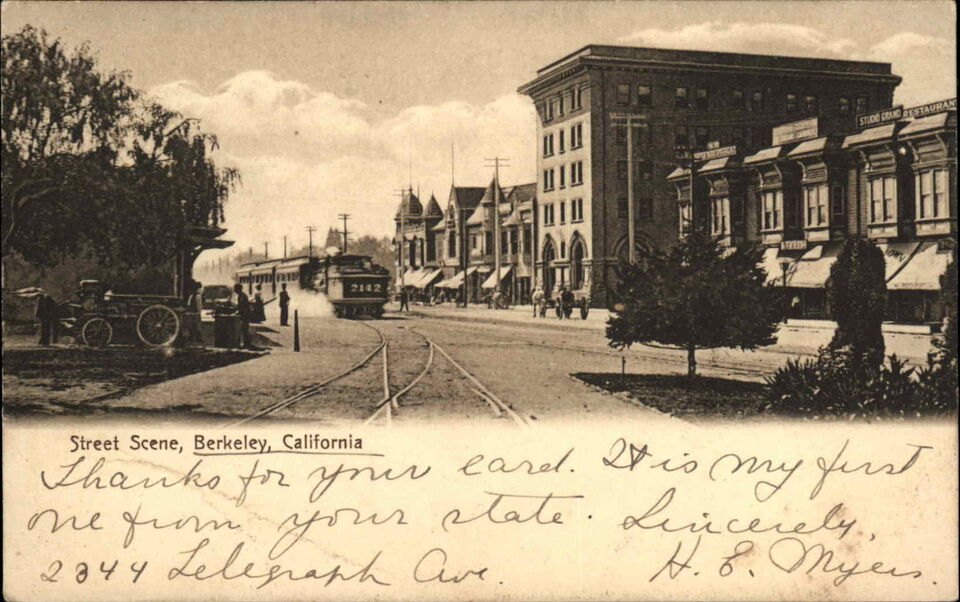 STUDIO GRAND RESTAURANT
2142
Street Scene, Berkeley, California
Thanks for your card. It is my first
one from your state. Sincerely,
2344 Telegraph Ave. H. E. Myers.